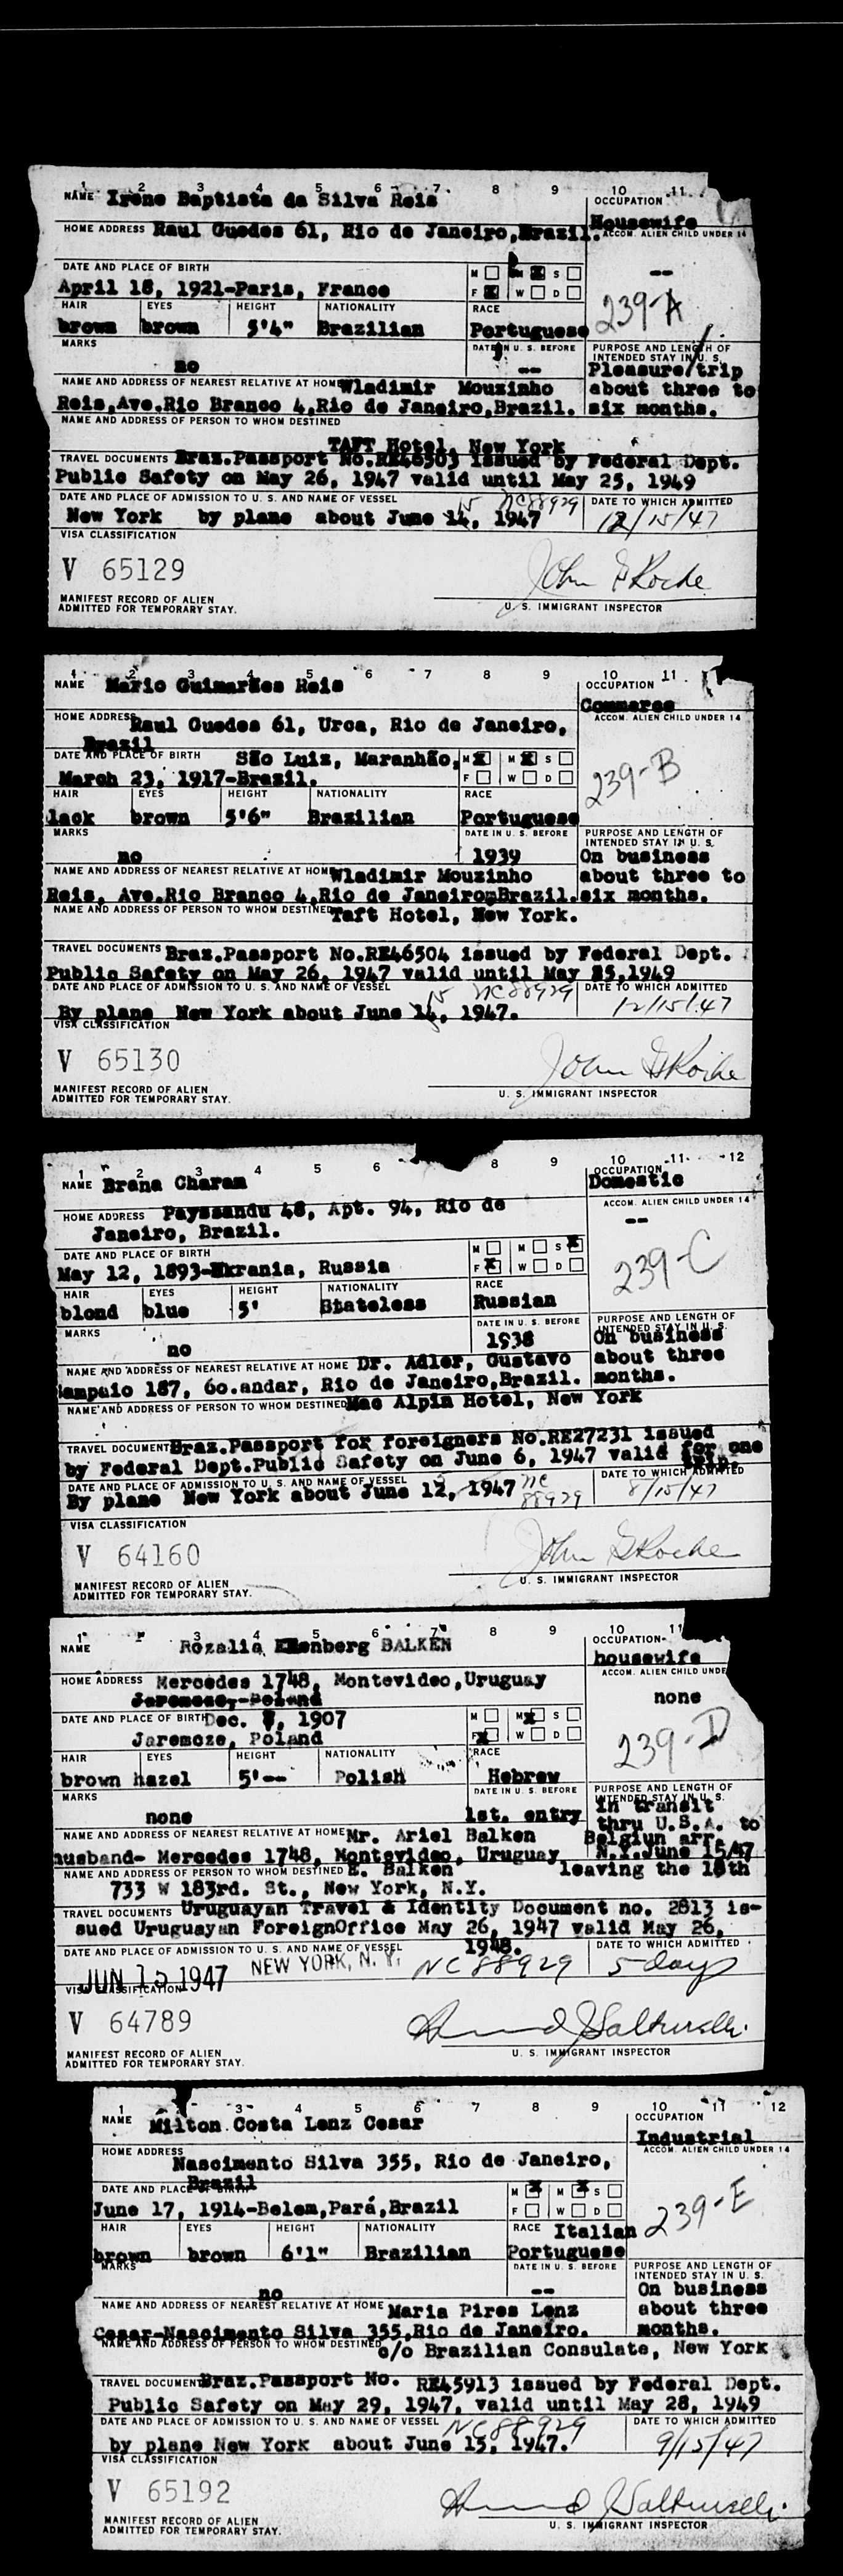 1 2 3 4 5 6 7 8 9 10 11
NAME Irene Baptista da Silva Reis
OCCUPATION
Housewife
HOME ADDRESS Raul Guedes 61, Rio de Janeiro, Brazil.
ACCOM. ALIEN CHILD UNDER 14
--
DATE AND PLACE OF BIRTH
M M S
April 18, 1921-Paris, France
F W D
239-A
HAIR EYES HEIGHT NATIONALITY RACE
brown brown 5'4" Brazilian Portuguese
MARKS
no
DATE IN U. S. BEFORE
--
PURPOSE AND LENGTH OF
INTENDED STAY IN U. S.
Pleasure trip
about three to
six months.
NAME AND ADDRESS OF NEAREST RELATIVE AT HOME Wladimir Mouzinho
Reis, Ave.Rio Branco 4, Rio de Janeiro, Brazil.
NAME AND ADDRESS OF PERSON TO WHOM DESTINED
TAFT Hotel, New York
TRAVEL DOCUMENTS Braz.Passport No.RE46503 issued by Federal Dept.
Public Safety on May 26, 1947 valid until May 25, 1949
DATE AND PLACE OF ADMISSION TO U. S. AND NAME OF VESSEL
15 NC88929
DATE TO WHICH ADMITTED
New York by plane about June 14, 1947
12/15/47
VISA CLASSIFICATION
V 65129
John G Roche
MANIFEST RECORD OF ALIEN
ADMITTED FOR TEMPORARY STAY.
U. S. IMMIGRANT INSPECTOR
1 2 3 4 5 6 7 8 9 10 11
NAME Mario Guimarães Reis
OCCUPATION
Commerce
HOME ADDRESS Raul Guedes 61, Urca, Rio de Janeiro,
Brazil
ACCOM. ALIEN CHILD UNDER 14
DATE AND PLACE OF BIRTH São Luiz, Maranhão,
M M S
March 23, 1917-Brazil.
F W D
239-B
HAIR EYES HEIGHT NATIONALITY RACE
lack brown 5'6" Brazilian Portuguese
MARKS
no
DATE IN U. S. BEFORE
1939
PURPOSE AND LENGTH OF
INTENDED STAY IN U. S.
On business
about three to
six months.
NAME AND ADDRESS OF NEAREST RELATIVE AT HOME Wladimir Mouzinho
Reis, Ave.Rio Branco 4, Rio de Janeiro, Brazil.
NAME AND ADDRESS OF PERSON TO WHOM DESTINED Taft Hotel, New York.
TRAVEL DOCUMENTS Braz.Passport No.RE46504 issued by Federal Dept.
Public Safety on May 26, 1947 valid until May 25, 1949
DATE AND PLACE OF ADMISSION TO U. S. AND NAME OF VESSEL
15 NC88929
DATE TO WHICH ADMITTED
By plane New York about June 14, 1947.
12/15/47
VISA CLASSIFICATION
V 65130
John G Roche
MANIFEST RECORD OF ALIEN
ADMITTED FOR TEMPORARY STAY.
U. S. IMMIGRANT INSPECTOR
1 2 3 4 5 6 8 9 10 11 12
NAME Brana Charam
OCCUPATION
Domestic
HOME ADDRESS Payssandu 48, Apt. 94, Rio de
Janeiro, Brazil.
ACCOM. ALIEN CHILD UNDER 14
--
DATE AND PLACE OF BIRTH
M M S
May 12, 1893-Ukrania, Russia
F W D
239-C
HAIR EYES HEIGHT NATIONALITY RACE
blond blue 5' Stateless Russian
MARKS
no
DATE IN U. S. BEFORE
1938
PURPOSE AND LENGTH OF
INTENDED STAY IN U. S.
On business
about three
months.
NAME AND ADDRESS OF NEAREST RELATIVE AT HOME Dr. Adler, Gustavo
Sampaio 187, 6o.andar, Rio de Janeiro, Brazil.
NAME AND ADDRESS OF PERSON TO WHOM DESTINED Mac Alpin Hotel, New York
TRAVEL DOCUMENT Braz.Passport for foreigners No.RE27231 issued
by Federal Dept.Public Safety on June 6, 1947 valid for one
trip.
DATE AND PLACE OF ADMISSION TO U. S. AND NAME OF VESSEL
DATE TO WHICH ADMITTED
By plane New York about June 12, 1947 NC
88929
8/15/47
VISA CLASSIFICATION
V 64160
John G Roche
MANIFEST RECORD OF ALIEN
ADMITTED FOR TEMPORARY STAY.
U. S. IMMIGRANT INSPECTOR
1 3 4 5 6 7 8 9 10 11
NAME Rozalia Elsenberg BALKEN
OCCUPATION
housewife
HOME ADDRESS Mercedes 1748, Montevideo, Uruguay
ACCOM. ALIEN CHILD UNDE
Jaremoze, Poland
none
DATE AND PLACE OF BIRTH Dec. , 1907
M M S
Jaremoze, Poland
F W D
239-D
HAIR EYES HEIGHT NATIONALITY RACE
brown hazel 5'-- Polish Hebrew
MARKS
none
DATE IN U. S. BEFORE
1st. entry
PURPOSE AND LENGTH OF
INTENDED STAY IN U. S.
In transit
thru U.S.A. to
Belgiun arr.
N.Y.June 15/47
leaving the 18th
NAME AND ADDRESS OF NEAREST RELATIVE AT HOME Mr. Ariel Balken
husband- Mercedes 1748, Montevideo, Uruguay
NAME AND ADDRESS OF PERSON TO WHOM DESTINED E. Balken
733 W 183rd. St., New York, N.Y.
TRAVEL DOCUMENTS Uruguayan Travel & Identity Document no. 2813 is-
sued Uruguayan ForeignOffice May 26, 1947 valid May 26,
1948.
DATE AND PLACE OF ADMISSION TO U. S. AND NAME OF VESSEL
DATE TO WHICH ADMITTED
JUN 15 1947 NEW YORK, N. Y. NC 88929
5 days
VISA CLASSIFICATION
V 64789
MANIFEST RECORD OF ALIEN
ADMITTED FOR TEMPORARY STAY.
U. S. IMMIGRANT INSPECTOR
1 3 4 5 6 7 8 9 10 11 12
NAME Milton Costa Lenz Cesar
OCCUPATION
Industrial
HOME ADDRESS
Nascimento Silva 355, Rio de Janeiro,
Brazil
ACCOM. ALIEN CHILD UNDER 14
DATE AND PLACE OF BIRTH
M M S
June 17, 1914-Belem, Pará, Brazil
F W D
239-E
HAIR EYES HEIGHT NATIONALITY RACE Italian
brown brown 6'1" Brazilian Portuguese
MARKS
no
DATE IN U. S. BEFORE
--
PURPOSE AND LENGTH OF
INTENDED STAY IN U. S.
On business
about three
months.
NAME AND ADDRESS OF NEAREST RELATIVE AT HOME Maria Pires Lenz
Cesar-Nascimento Silva 355, Rio de Janeiro.
NAME AND ADDRESS OF PERSON TO WHOM DESTINED c/o Brazilian Consulate, New York
TRAVEL DOCUMENT Braz.Passport No. RE45913 issued by Federal Dept.
Public Safety on May 29, 1947, valid until May 28, 1949
DATE AND PLACE OF ADMISSION TO U. S. AND NAME OF VESSEL NC88929
DATE TO WHICH ADMITTED
by plane New York about June 15, 1947.
9/15/47
VISA CLASSIFICATION
V 65192
MANIFEST RECORD OF ALIEN
ADMITTED FOR TEMPORARY STAY.
U. S. IMMIGRANT INSPECTOR